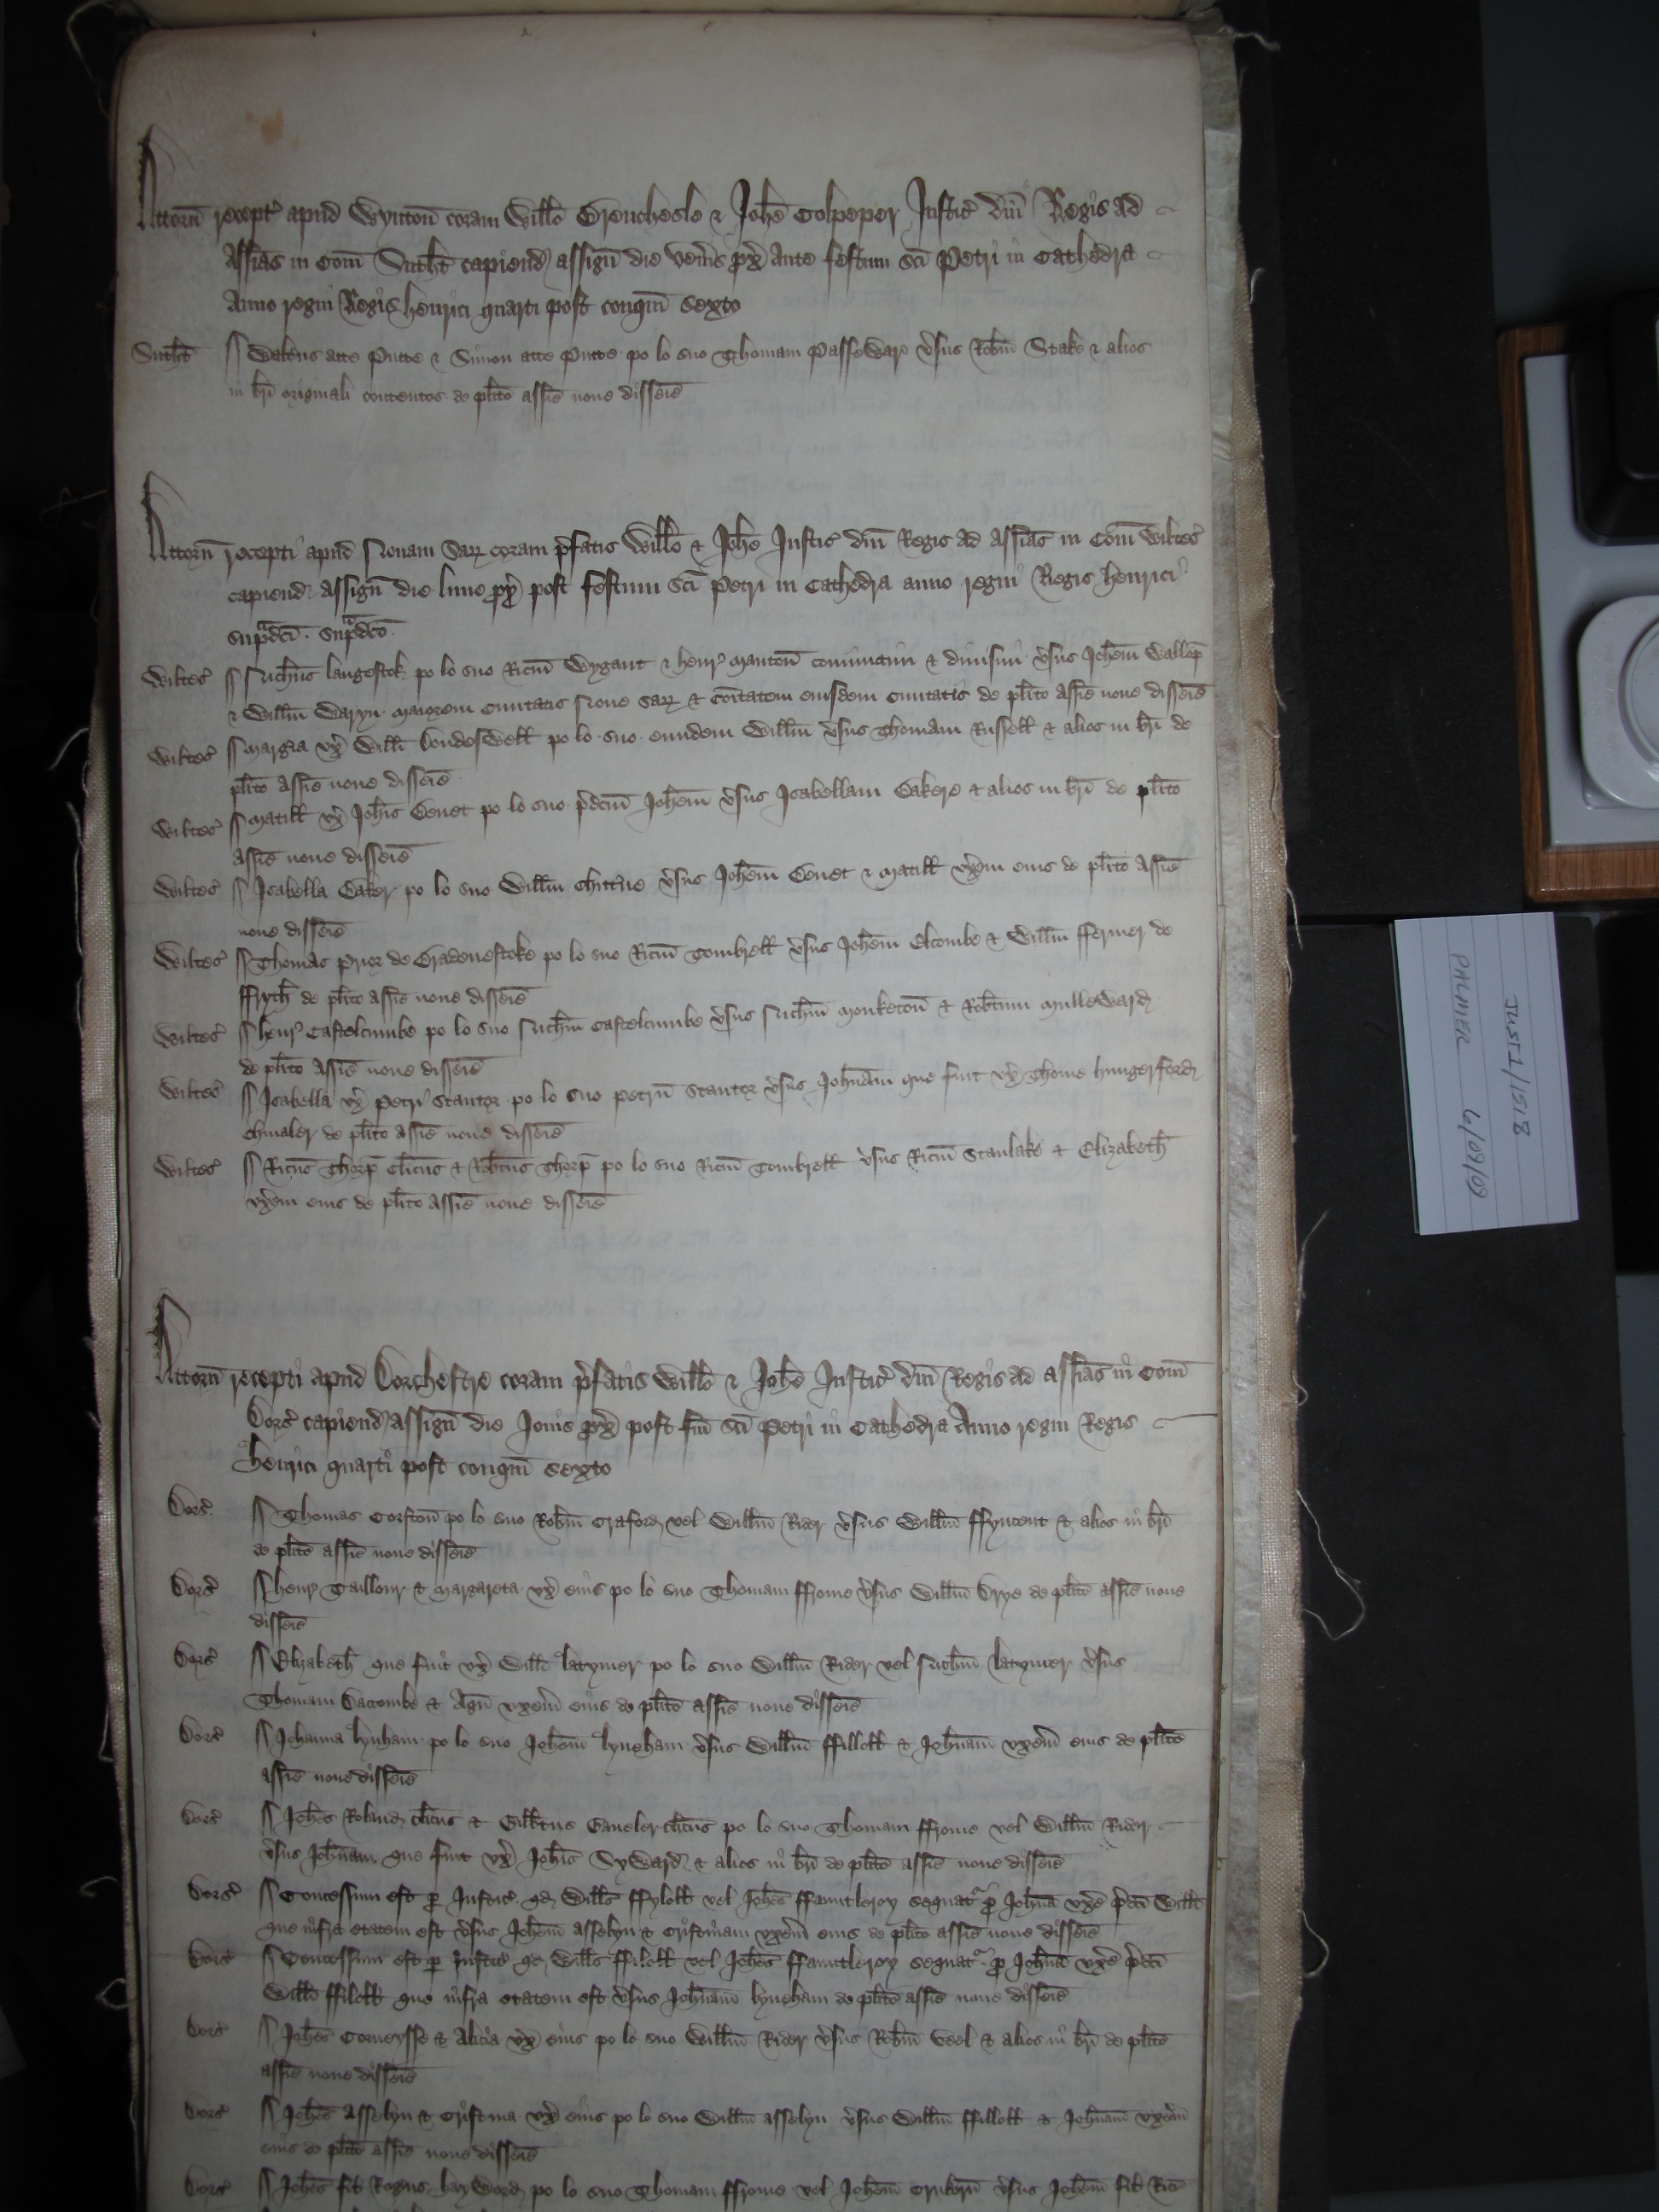 Attorn recept apud Wynton coram Willo Brencheslo & Johe Colpeper Justic dni Regis ad
assias in Com Sutht capiend assign die Veneris px ante festum sci Petri in Cathedra
Anno regni Regis henrici quarti post conqm sexto
Sutht Walterus atte Putte & Simon atte Putte po lo suo Thomam Passeware vsus Robtm Stake & alios
in bri originali contentos de plito assie noue disseie
Attorn recepti apud Nouam Sar coram pfatis Willo & Johe Justic dni Regis ad assias in Com Wiltes
capiend assign die lune px post festum sci Petri in Cathedra anno regni Regis henrici
supradci supradco
Wiltes Nichus langestok po lo suo Ricm Wygant & henr Manton coniunctim & diuisim vsus Johem Wallop
& Willm Waryn maiorem Ciuitatis Noue Sar & coitatem eiusdem Ciuitatis de plito assie noue disseie
Wiltes Margia vx Willi Goudeswell po lo suo eundem Willm vsus Thomam Russell & alios in bri de
plito assie noue disseie
Wiltes Matill vx Johis Genet po lo suo pdcm Johem vsus Isabellam Bakere & alios in bri de plito
assie noue disseie
Wiltes Isabella Baker po lo suo Willm Chittue vsus Johem Genet & Matill vxem eius de plito assie
noue disseie
Wiltes Thomas Prior de Bradenestoke po lo suo Ricm Gombrell vsus Johem Elcombe & Willm ffermer de
ffryth de plito assie noue disseie
Wiltes henr Castelcumbe po lo suo Nichm Castelcumbe vsus Nichm Monketon & Robtum Mulleward
de plito assie noue disseie
Wiltes Isabella vx Petri Stantor po lo suo petrum Stantor vsus Johnam que fuit vx Thome hungerford
chiualer de plito assie noue disseie
Wiltes Ricus Thorp clicus & Robtus Thorp po lo suo Ricm Gombrell vsus Ricm Stanlake & Elizabeth
vxem eius de plito assie noue disseie
Attorn recepti apud Dorchestre coram pfatis Willo & Johe Justic dni Regis ad assias in Com
Dors capiend assign die Jouis px post fm sci Petri in Cathedra Anno regni Regis
henrici quarti post conqm sexto
Dors Thomas Corfton po lo suo Robtm Craford vel Willm Rider vsus Willm ffyncent & alios in bri
de plito assie noue disseie
Dors henr Taillour & Margareta vx eius po lo suo Thomam ffrome vsus Willm Drye de plito assie noue
disseie
Dors Elizabeth que fuit vx Willi latymer po lo suo Willm Rider vel Nichm latymer vsus
Thomam Daccombe & Agn vxem eius de plito assie noue disseie
Dors Johanna lynham po lo suo Johem lyneham vsus Willm ffilloll & Johnam vxem eius de plito
assie noue disseie
Dors Johes Roland clicus & Gilbtus Caneler clicus po lo suo Thomam ffrome vel Willm Rider
vsus Johnam que fuit vx Johis Syward & alios in bri de plito assie noue disseie
Dors Concessum est p Justic qd Wills ffyloll vel Johes ffauntleroy sequat p Johna vxe pdci Willi
que infra etatem est vsus Johem Asselyn & Cristinam vxem eius de plito assie noue disseie
Dors Concessum est p Justic qd Wills ffiloll vel Johes ffauntleroy sequat p Johna vxe pdci
Willi ffiloll que infra etatem est vsus Johnam lyneham de plito assie noue disseie
Dors Johes Corneysse & Alicia vx eius po lo suo Willm Rider vsus Robtm Veel & alios in bri de plito
assie noue disseie
Dors Johes Asselyn & Cristina vx eius po lo suo Willm Asselyn vsus Willm ffilloll & Johnam vxem
eius de plito assie noue disseie
Dors Johes fil Rogeri hayward po lo suo Thomam ffrome vel Johem vsus Johem fil Rici
JUST 1/1518
PALMER 6/09/09